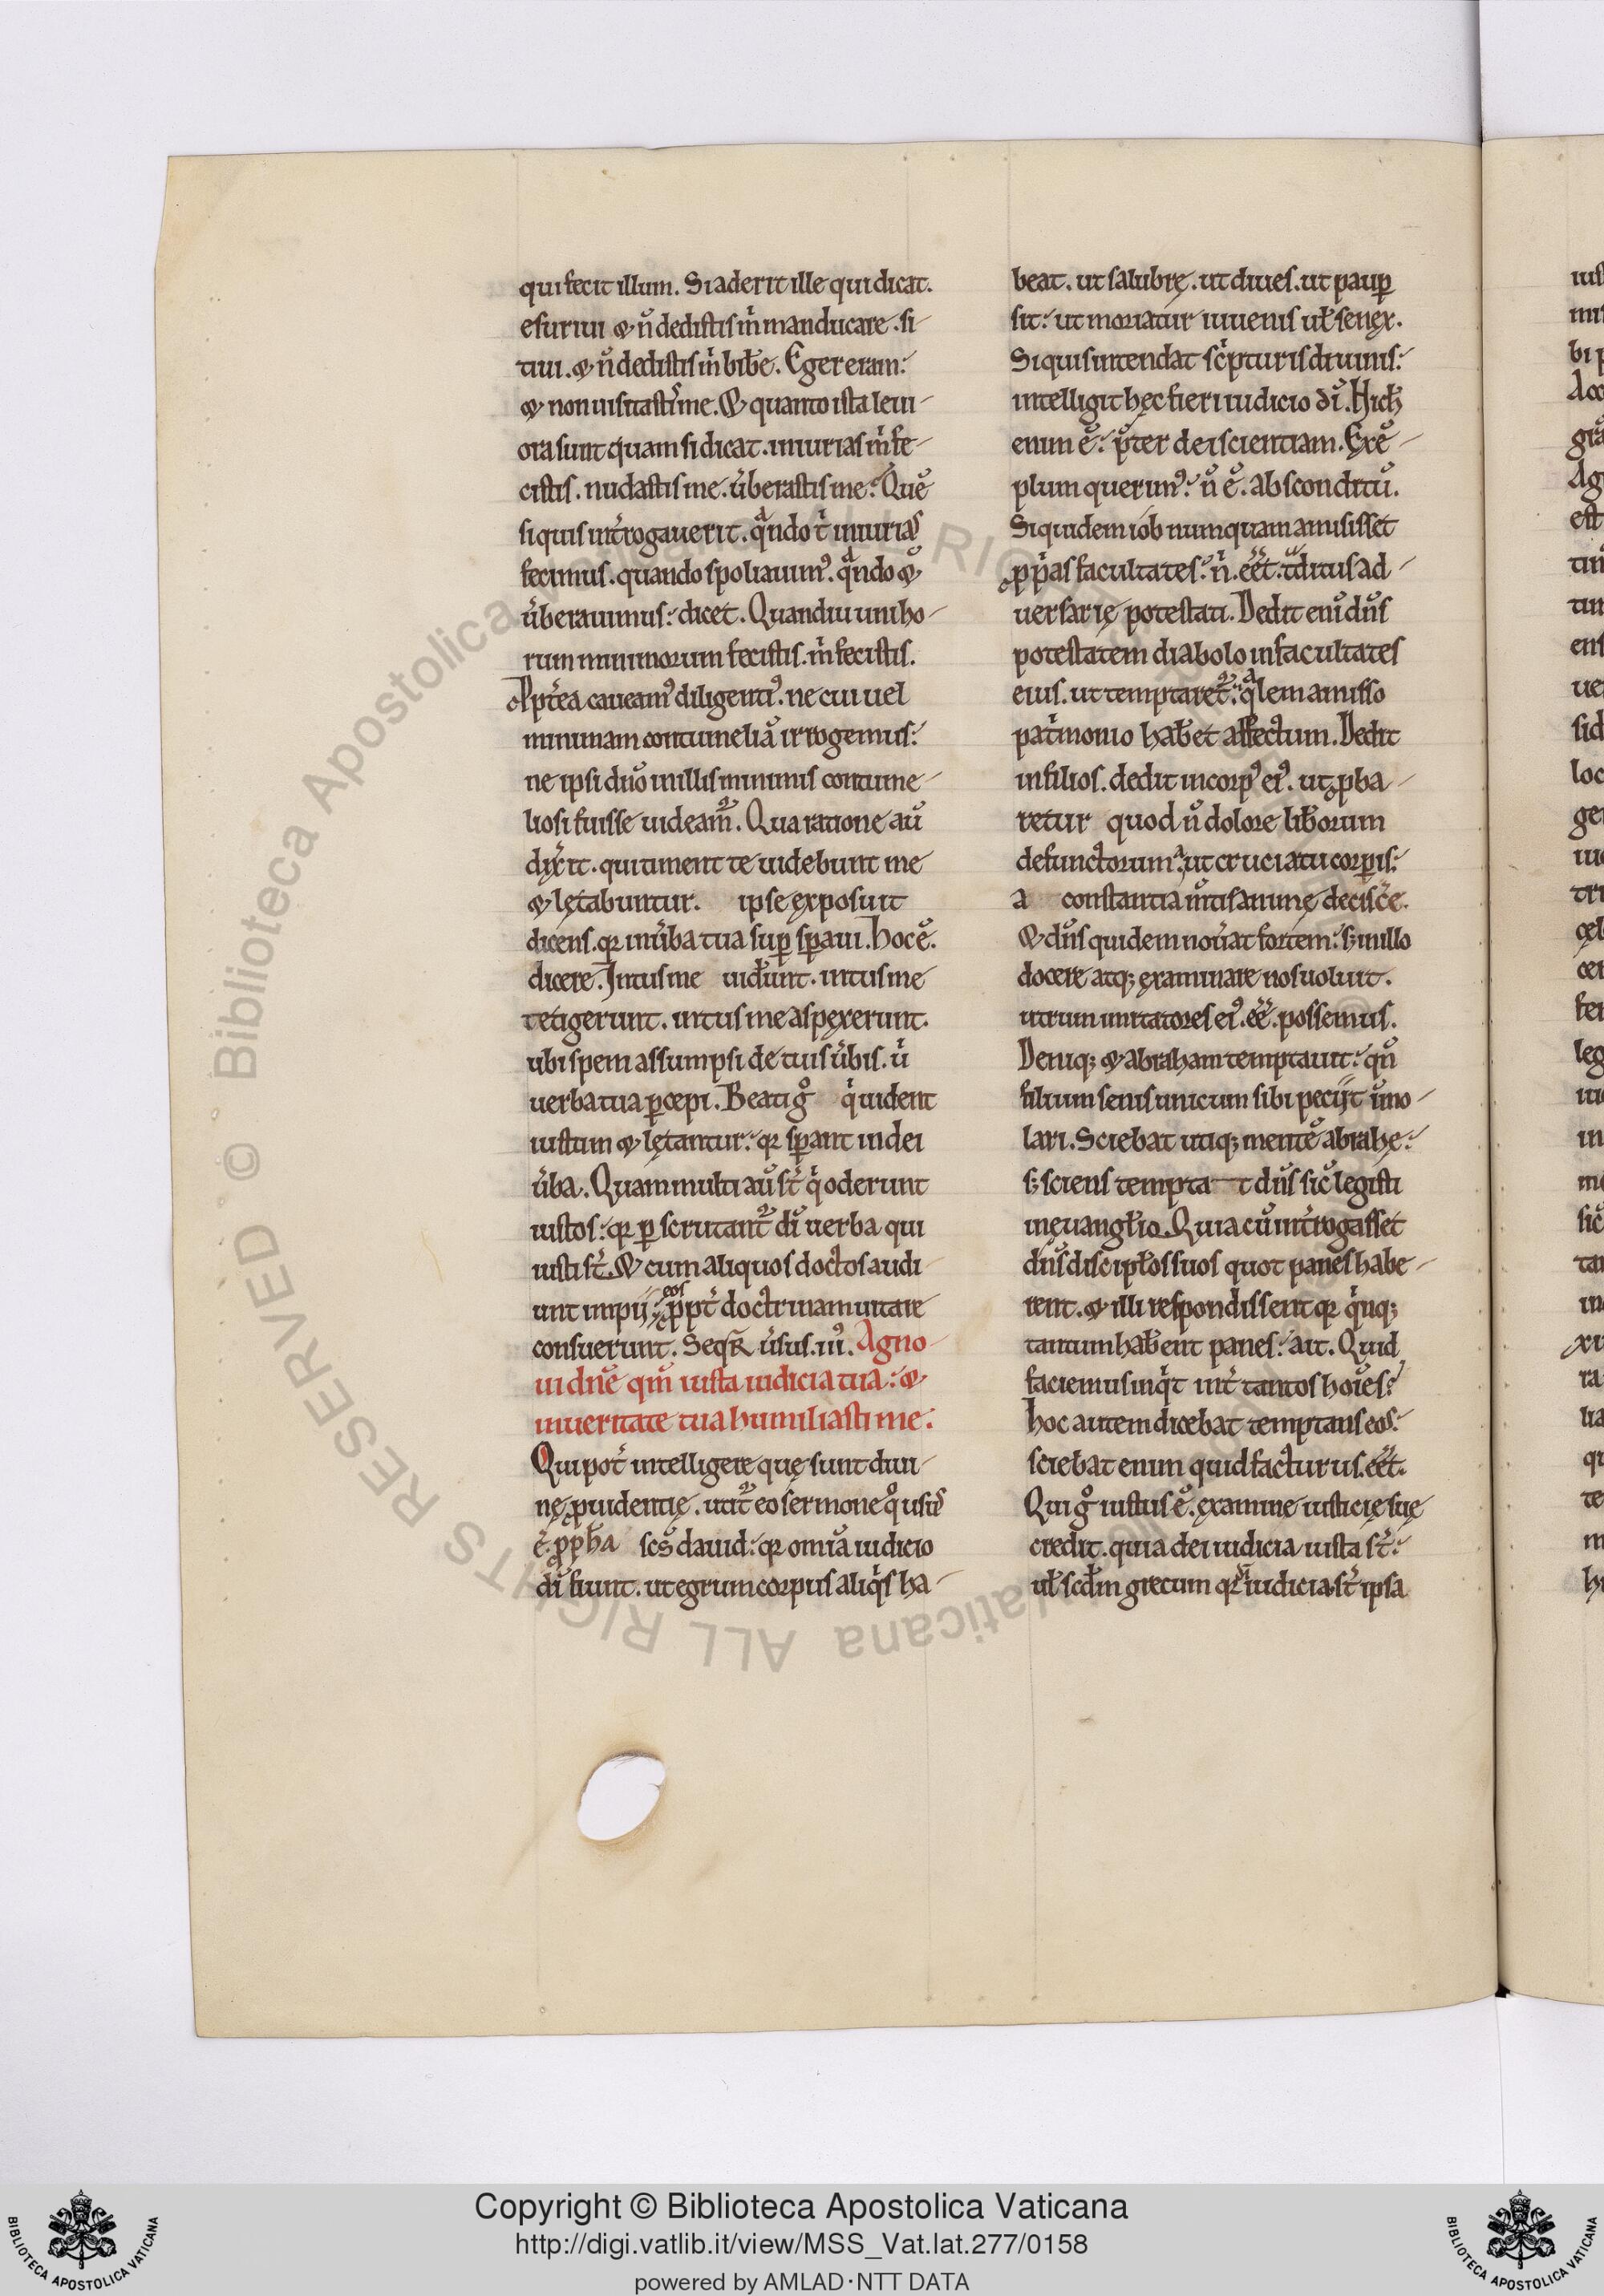 qui fecit illum. Si aderit ille qui dicat.
esuriui & n̄ dedistis m̍ manducare. si-
tiui. & n̄ dedistis m̍ bib̄e. Eger eram:
& non uisitastis me. & quanto ista leui-
ora sunt quam si dicat. iniurias m̍ fe-
cistis. nudastis me. ūberastis me. Quē
si quis int̄rogauerit. qᵃndo t̍ iniurias
fecimus. quando spoliauimꝰ. qᵃndo &
ūberauimus: dicet. Quandiu uni ho-
rum minimorum fecistis. m̍ fecistis.
Ppt̄ea caueamꝰ diligentiꝰ. ne cui uel
minimam contumeliā irrogemus:
ne ipsi dn̄o in illis minimis contume-
liosi fuisse uideamr̄. Qua ratione aū
dix̄it. qui timent te uidebunt me
& lętabuntur. ipse exposuit
dicens. qꝛ in ūba tua suꝑ sꝑaui. Hoc ē.
dicere. Intus me uider̄unt. intus me
tetigerunt. intus me aspexerunt.
ubi spem assumpsi de tuis ūbis. ū
uerba tua ꝑcepi. Beati gͦ q̍ uident
iustum & lętantur: qꝛ sꝑant in dei
ūba. Quam multi aū st̄ q̍ oderunt
iustos: qꝛ ꝑscrutant᷑ dī uerba qui
iusti st̄. & cum aliquos doctos audi-
unt impij: eos ꝓpt̄ doctrinam uitare
consuerunt. Seqr̄ ūsus .iiiꝰ. Agno-
ui dn̄e qm̄ iusta iudicia tua: &
in ueritate tua humiliasti me.
Qui pot̄ intelligere quę sunt diui-
nę ꝓuidentię. utit᷑ eo sermone qͦ usus
ē. ꝓph̄a scs̄ dauid: qꝛ omīa iudicio
dī fiunt. ut egrum corpus aliq̍s ha-
beat. ut salubrę. ut diues. ut pauꝑ
sit: ut moriatur iuuenis ul̄ senex.
Si quis intendat sc̍pturis diuinis:
intelligit hęc fieri iudicio dī. Nich̄
enim ē: p̄ter dei scientiam. Exē-
plum querimꝰ: n̄ ē. absconditū.
Siquidem iob numquam amisisset
ꝓp̍as facultates: n̍. eēt. tᵃditus ad-
uersarię potestati. Dedit eni dn̄s
potestatem diabolo in facultates
eius. ut temptaret᷑: qᵃlem amisso
pat̍monio hab̄et affectum. Dedit
in filios. dedit in corpꝰ eiꝰ. ut ꝓba-
retur quod n̄ dolore lib̄orum
defunctorum. ut cruciatu corꝑis:
a constantia m̄tis animę decisc̄e.
& dn̄s quidem nou̍at fortem: s; in illo
docere atq; examinare nos uoluit.
utrum imitatores eiꝰ. eē. possemus.
Deniq; & abraham temptauit: qn̄
filium senis unicum sibi pecijt īmo-
lari. Sciebat utiq; mentē abrahę:
s; sciens tempta-t dn̄s sic̄ legisti
in euangl̄io. Quia cū int̄rogasset
dn̄s discipl̄os suos quot panes habe-
rent. & illi respondissent qꝛ q̍nq;
tantum hab̄ent panes: ait. Quid
faciemus inq̍t int̄ tantos hoīes:
hoc autem dicebat temptans eos:
sciebat enim quid facturus. eēt.
Qui gͦ iustus ē. examine iusticię suę
credit. quia dei iudicia iusta st̄:
ul̄ scd̄m grecum qꝛ iudicia st̄ ipsa
Copyright © Biblioteca Apostolica Vaticana
http://digi.vatlib.it/view/MSS_Vat.lat.277/0158
powered by AMLAD·NTT DATA